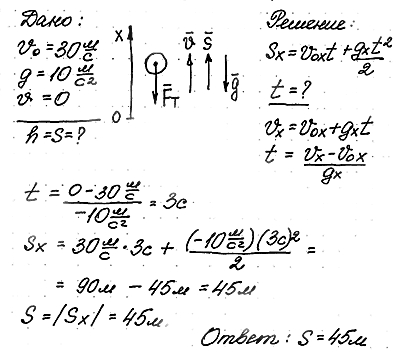 Дано:
v₀ = 30 м/с
g = 10 м/с²
v = 0
h = S = ?
x
0
F̄т
v̄
S̄
ḡ
Решение:
Sx = v₀xt + gxt²/2
t = ?
vx = v₀x + gxt
t = (vx − v₀x)/gx
t = (0 − 30 м/с)/(−10 м/с²) = 3с
Sx = 30 м/с · 3с + (−10 м/с²)(3с)²/2 =
= 90м − 45м = 45м
S = |Sx| = 45м.
Ответ: S = 45м